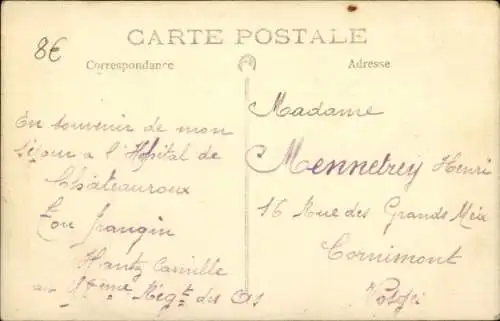 8€
CARTE POSTALE
Correspondance
Adresse
En souvenir de mon
séjour a l'Hopital de
Châteauroux
Ton frangin
Hantz Camille
au Régt des
Madame
Mennetrey Henri
16 Rue des Grands Meix
Cornimont
Vosges